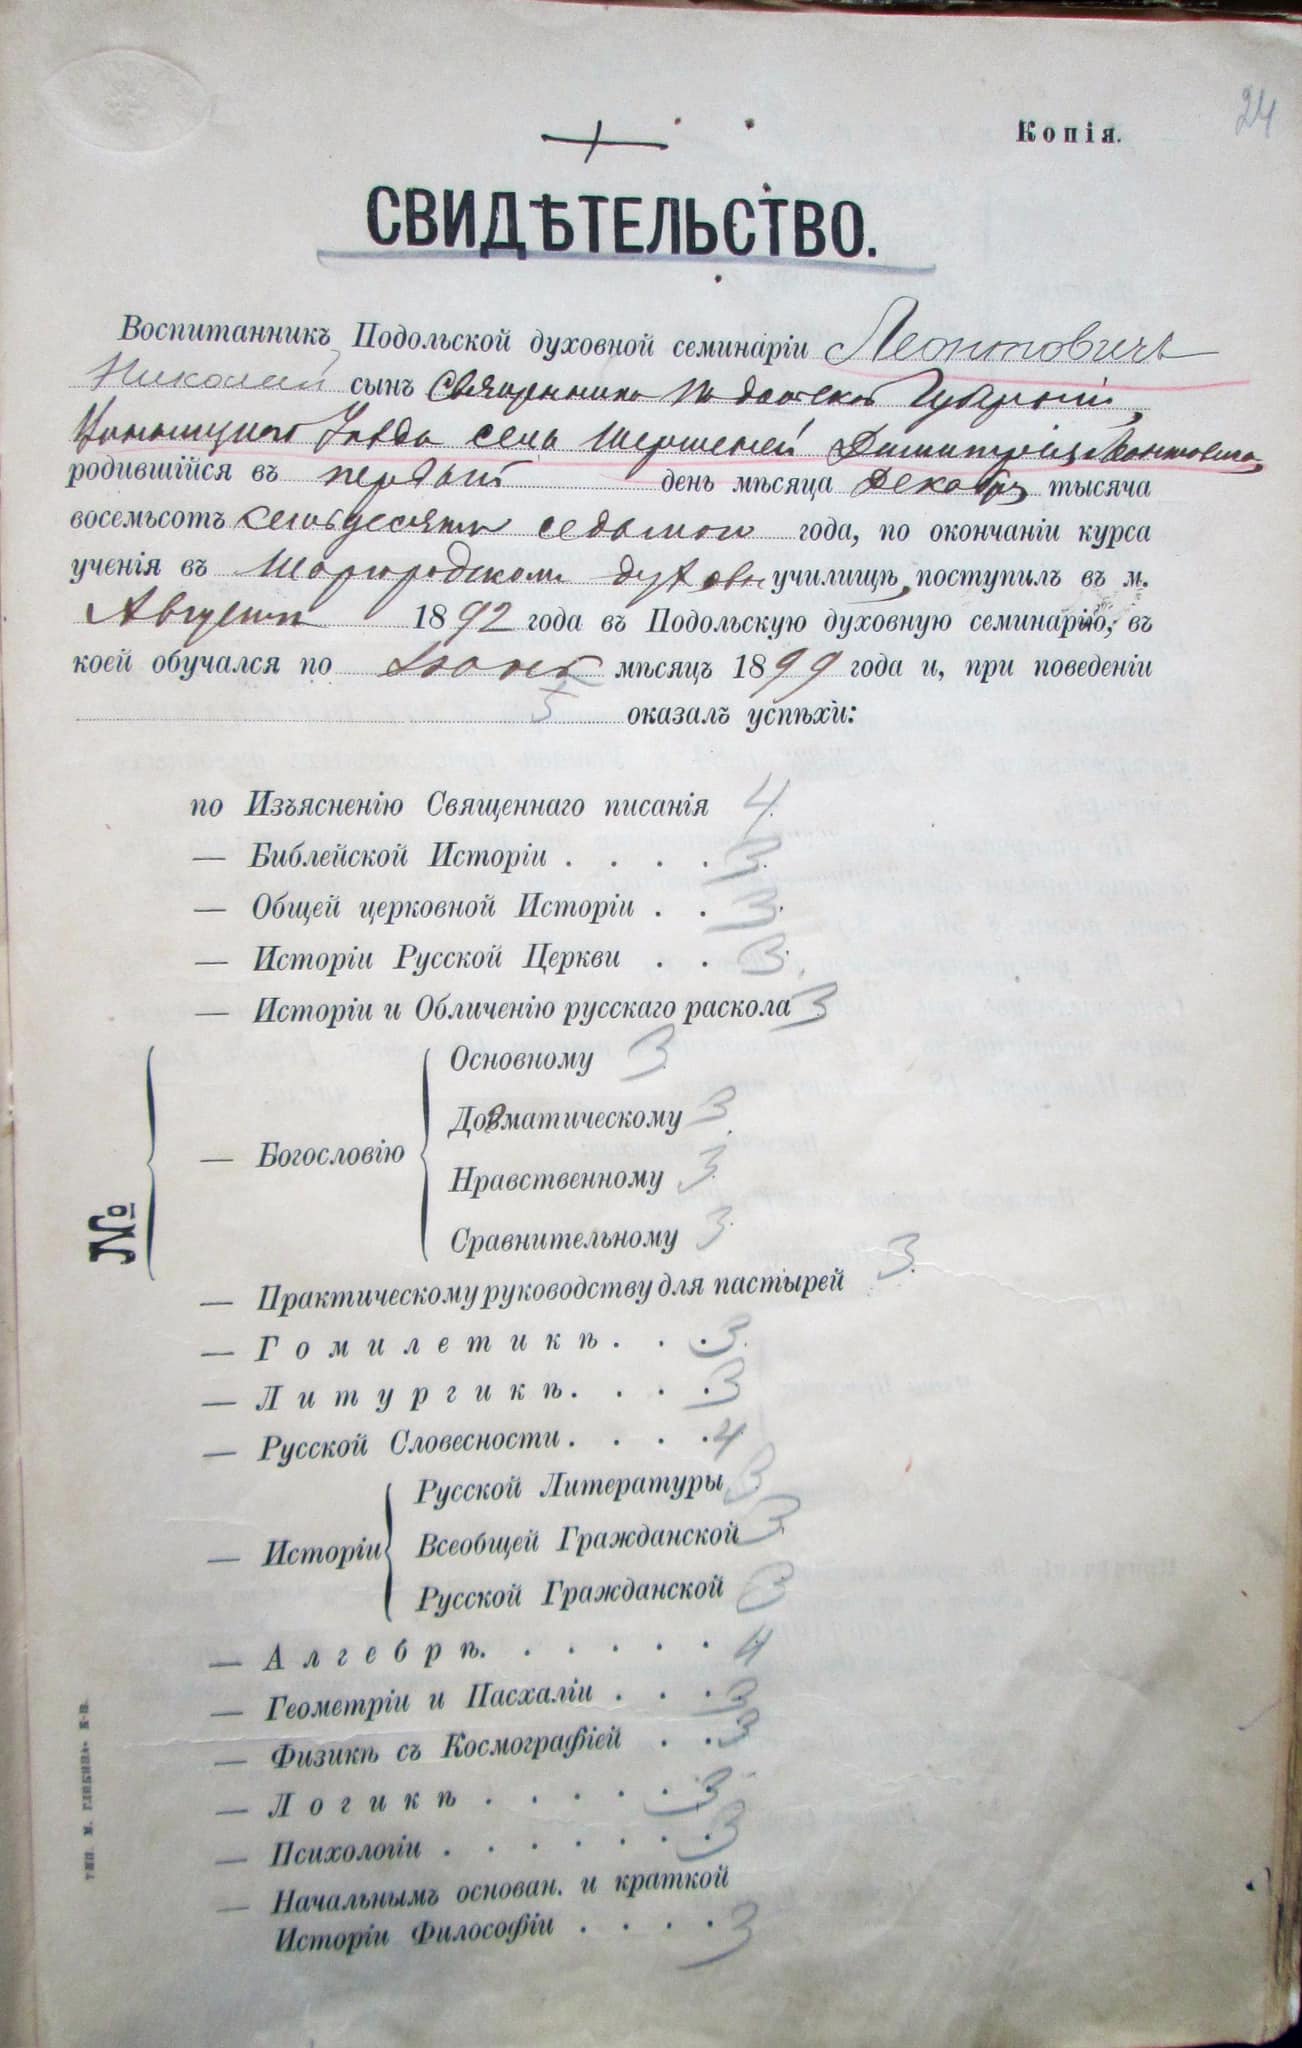 24
Копія.
СВИДѢТЕЛЬСТВО.
Воспитанникъ Подольской духовной семинаріи Леонтовичъ
Николай сынъ Священника Подольской Губерніи,
Винницкого Уѣзда села Шершней Димитрія Леонтовича
родившійся въ первый день мѣсяца Декабря тысяча
восемьсотъ семьдесятъ седьмого года, по окончаніи курса
ученія въ Шаргородскомъ духовн училищѣ, поступилъ въ м.
Августѣ 1892 года въ Подольскую духовную семинарію, въ
коей обучался по Іюнь мѣсяцъ 1899 года и, при поведеніи
5 оказалъ успѣхи:
по Изъясненію Священнаго писанія 4.
— Библейской Исторіи . . . . 3.
— Общей церковной Исторіи . . 3.
— Исторіи Русской Церкви . . 3.
— Исторіи и Обличенію русскаго раскола 3
Основному 3
Догматическому 3
№ — Богословію
Нравственному 3.
Сравнительному 3.
— Практическому руководству для пастырей 3.
— Гомилетикѣ . . . 3.
— Литургикѣ . . . . 3
— Русской Словесности . . . . 4
Русской Литературы 3
— Исторіи Всеобщей Гражданской 3
Русской Гражданской 3
— Алгебрѣ . . . . . . 4
— Геометріи и Пасхаліи . . . 3
— Физикѣ съ Космографіей . . 3
— Логикѣ . . . . . 3
— Психологіи . . . . . . . 3
— Начальнымъ основан. и краткой
Исторіи Философіи . . . . 3
тип. М. Гликина К-П.